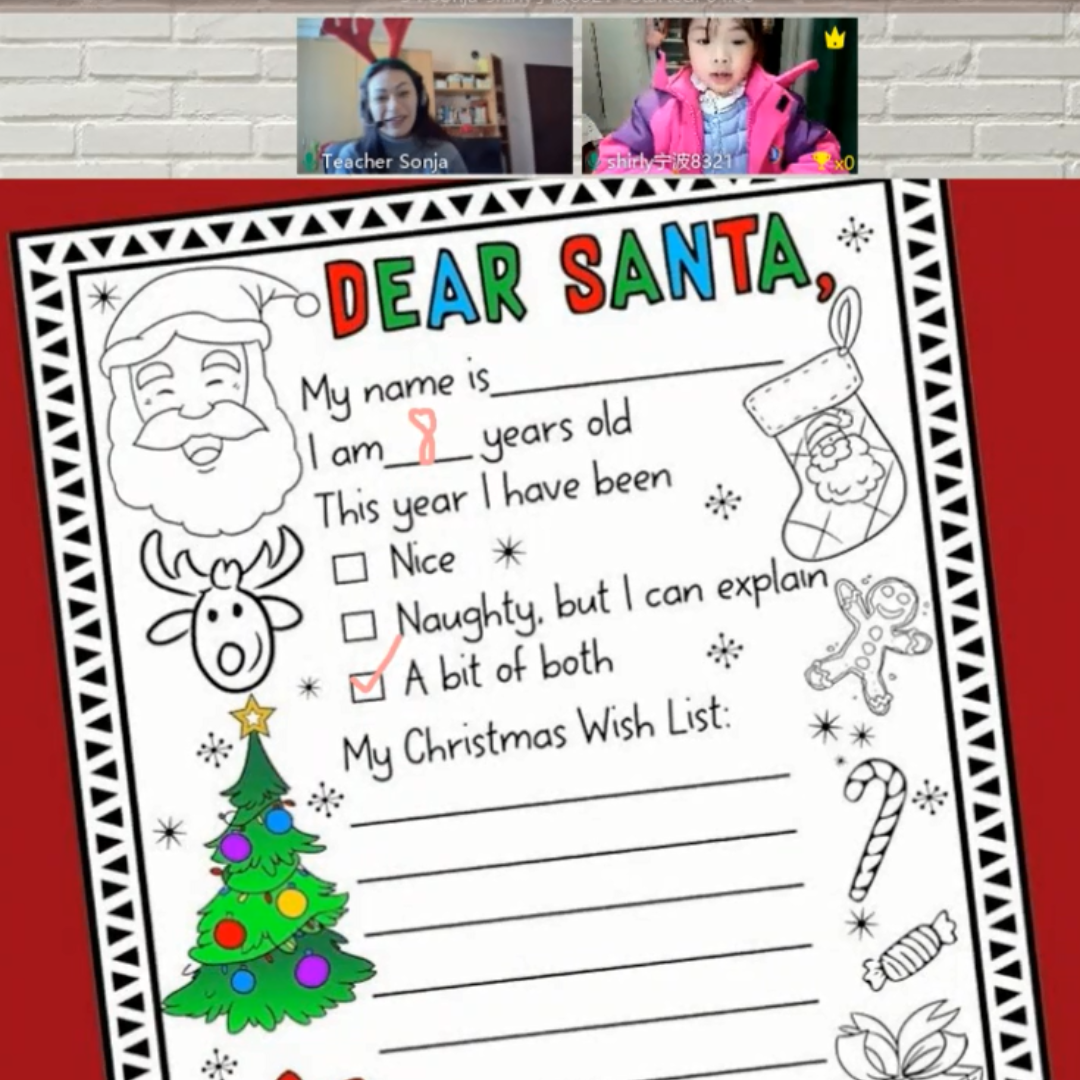 Teacher Sonja
shirly宁波8321
x0
DEAR SANTA,
My name is
I am 8 years old
This year I have been
Nice
Naughty, but I can explain
A bit of both
My Christmas Wish List: